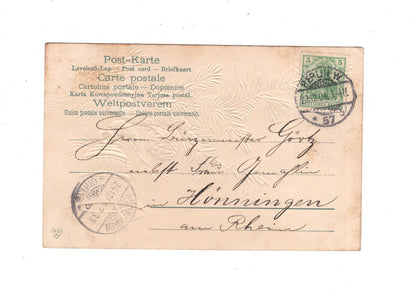 Post-Karte
Levelező-Lap — Post card — Briefkaart
Carte postale
Cartolina postale — Dopisnice
Karta Korespondencyjna Tarjeta postal
Weltpostverein
Union postale universelle — Unione postale universale
5 5
BERLIN W.
* 57
Herrn Bürgermeister Görtz
nebst Frau Gemahlin
in Hönningen
am Rhein